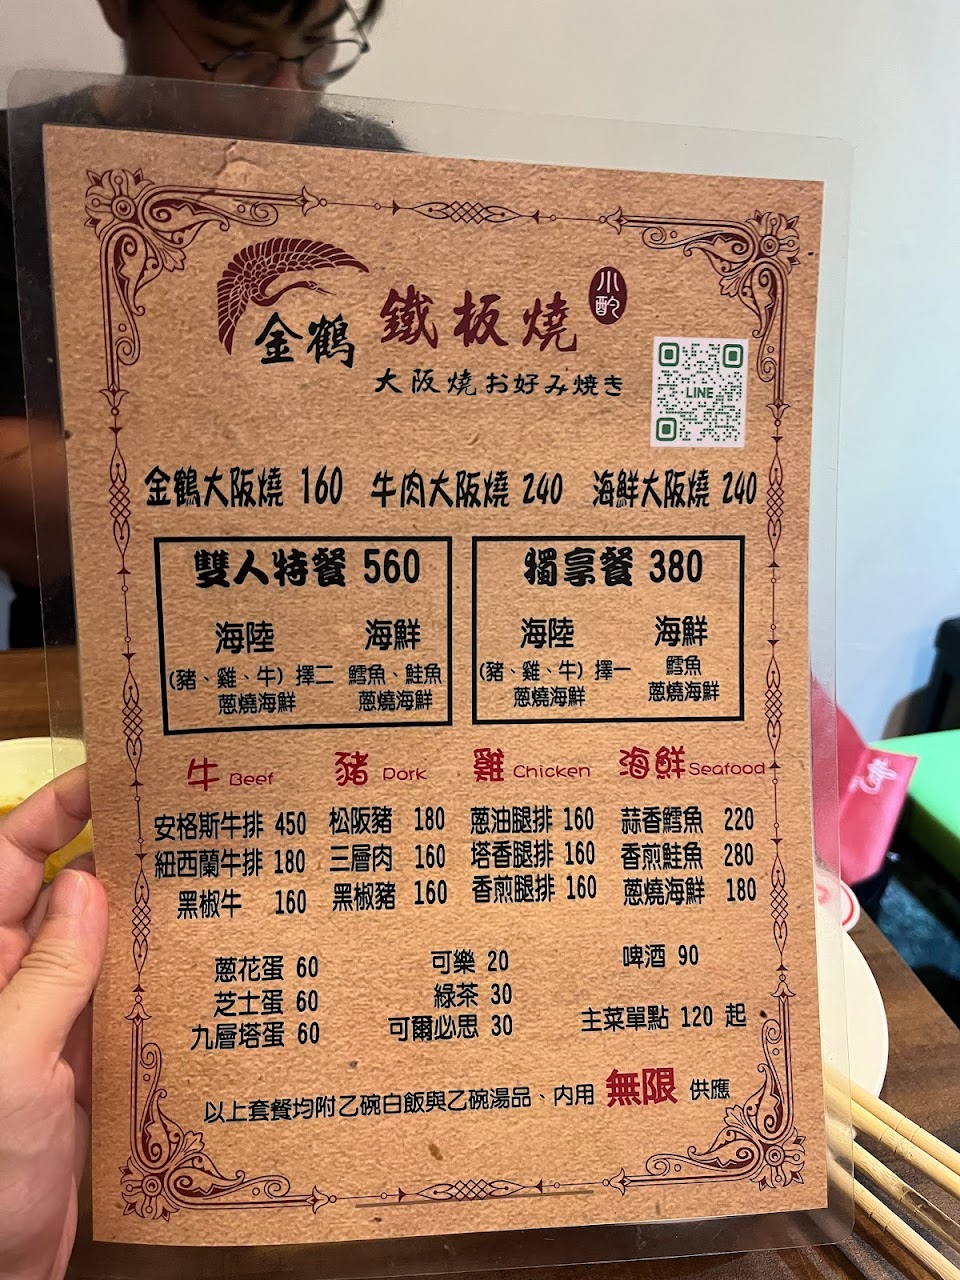 金鶴 鐵板燒 小酌
大阪燒お好み焼き
LINE
金鶴大阪燒 160 牛肉大阪燒 240 海鮮大阪燒 240
雙人特餐 560 獨享餐 380
海陸 海鮮 海陸 海鮮
(豬、雞、牛) 擇二 鱈魚、鮭魚 (豬、雞、牛) 擇一 鱈魚
蔥燒海鮮 蔥燒海鮮 蔥燒海鮮 蔥燒海鮮
牛 Beef 豬 Pork 雞 Chicken 海鮮 Seafood
安格斯牛排 450 松阪豬 180 蔥油腿排 160 蒜香鱈魚 220
紐西蘭牛排 180 三層肉 160 塔香腿排 160 香煎鮭魚 280
黑椒牛 160 黑椒豬 160 香煎腿排 160 蔥燒海鮮 180
蔥花蛋 60 可樂 20 啤酒 90
芝士蛋 60 綠茶 30
九層塔蛋 60 可爾必思 30 主菜單點 120 起
以上套餐均附乙碗白飯與乙碗湯品、內用 無限 供應
Cafe